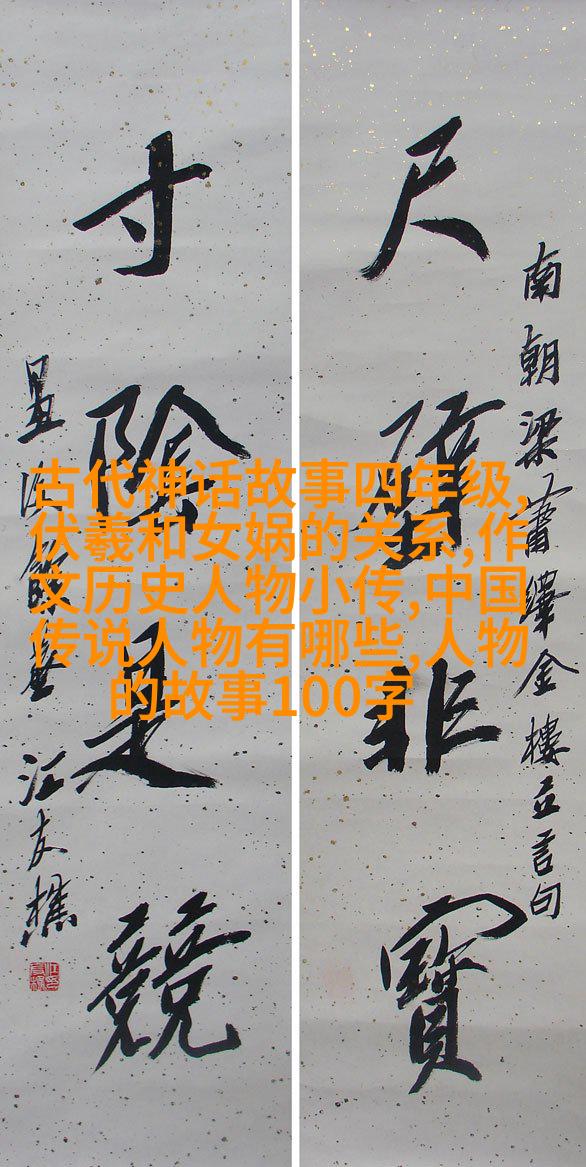 南朝梁蕭繹金樓立言句
尺璧非寶
寸陰是競
江友樵
古代神话故事四年级,
伏羲和女娲的关系,作
文历史人物小传,中国
传说人物有哪些,人物
的故事100字